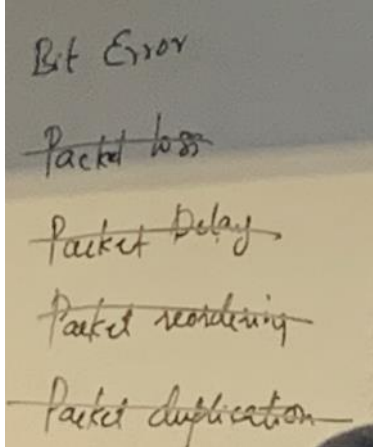 Bit Error
Packet loss
Packet Delay
Packet reordering
Packet duplication